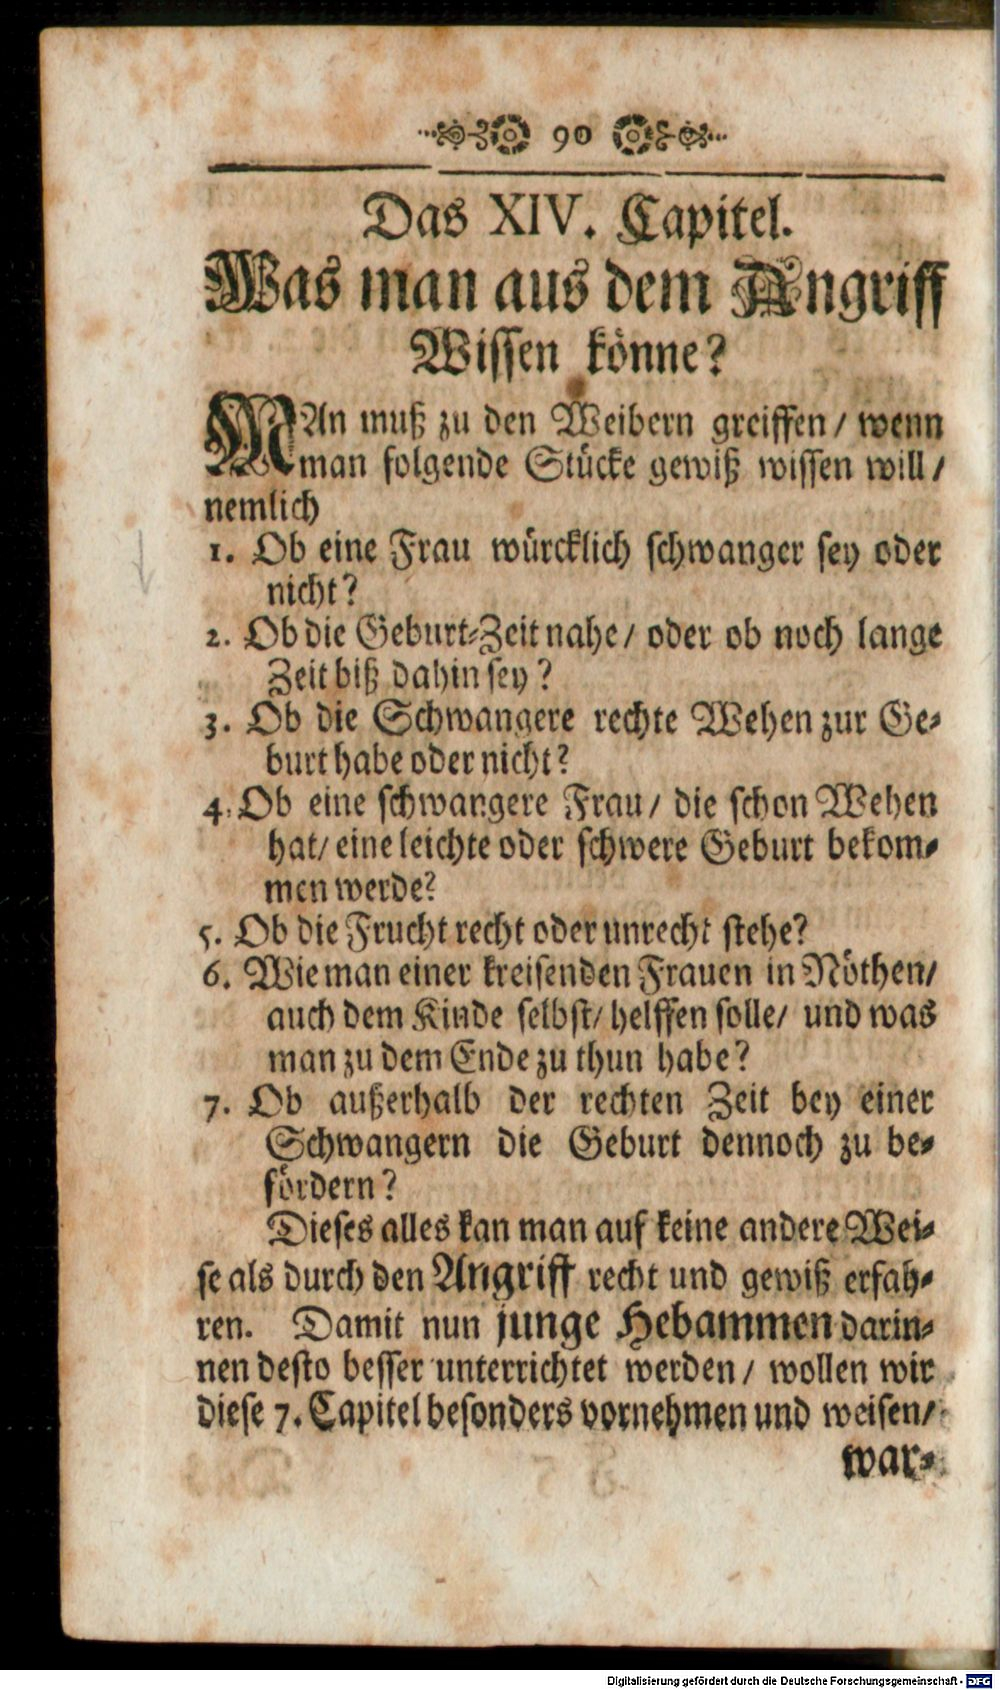 90
Das XIV. Capitel.
Was man aus dem Angriff
Wissen könne?
MAn muß zu den Weibern greiffen / wenn
man folgende Stücke gewiß wissen will /
nemlich
1. Ob eine Frau würcklich schwanger sey oder
nicht?
2. Ob die Geburt-Zeit nahe / oder ob noch lange
Zeit biß dahin sey?
3. Ob die Schwangere rechte Wehen zur Ge-
burt habe oder nicht?
4. Ob eine schwangere Frau / die schon Wehen
hat / eine leichte oder schwere Geburt bekom-
men werde?
5. Ob die Frucht recht oder unrecht stehe?
6. Wie man einer kreisenden Frauen in Nöthen /
auch dem Kinde selbst / helffen solle / und was
man zu dem Ende zu thun habe?
7. Ob außerhalb der rechten Zeit bey einer
Schwangern die Geburt dennoch zu be-
fördern?
Dieses alles kan man auf keine andere Wei-
se als durch den Angriff recht und gewiß erfah-
ren. Damit nun junge Hebammen darin-
nen desto besser unterrichtet werden / wollen wir
diese 7. Capitel besonders vornehmen und weisen /
war-
Digitalisierung gefördert durch die Deutsche Forschungsgemeinschaft - DFG